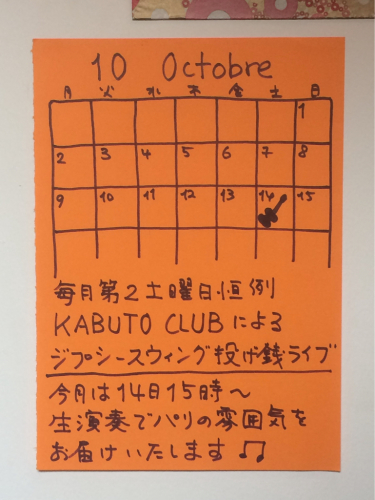 10 Octobre
月 火 水 木 金 土 日
1
2 3 4 5 6 7 8
9 10 11 12 13 14 15
毎月第2土曜日恒例
KABUTO CLUBによる
ジプシースウィング投げ銭ライブ
今月は14日15時〜
生演奏でパリの雰囲気を
お届けいたします♫